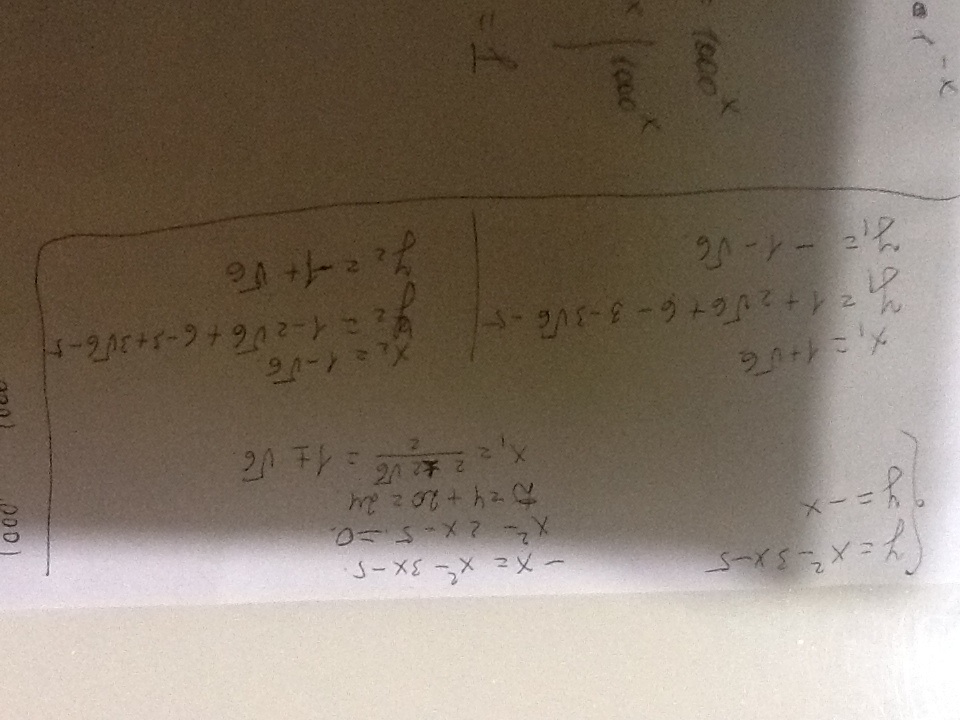 y = x² - 3x - 5
y = - x
- x = x² - 3x - 5
x² - 2x - 5 = 0.
D = 4 + 20 = 24
x₁ = 2 ± 2√6 / 2 = 1 ± √6
x₁ = 1 + √6
y₁ = 1 + 2√6 + 6 - 3 - 3√6 - 5
y₁ = - 1 - √6
x₂ = 1 - √6
y₂ = 1 - 2√6 + 6 - 3 + 3√6 - 5
y₂ = - 1 + √6
1000ˣ
1000ˣ
= 1
1000